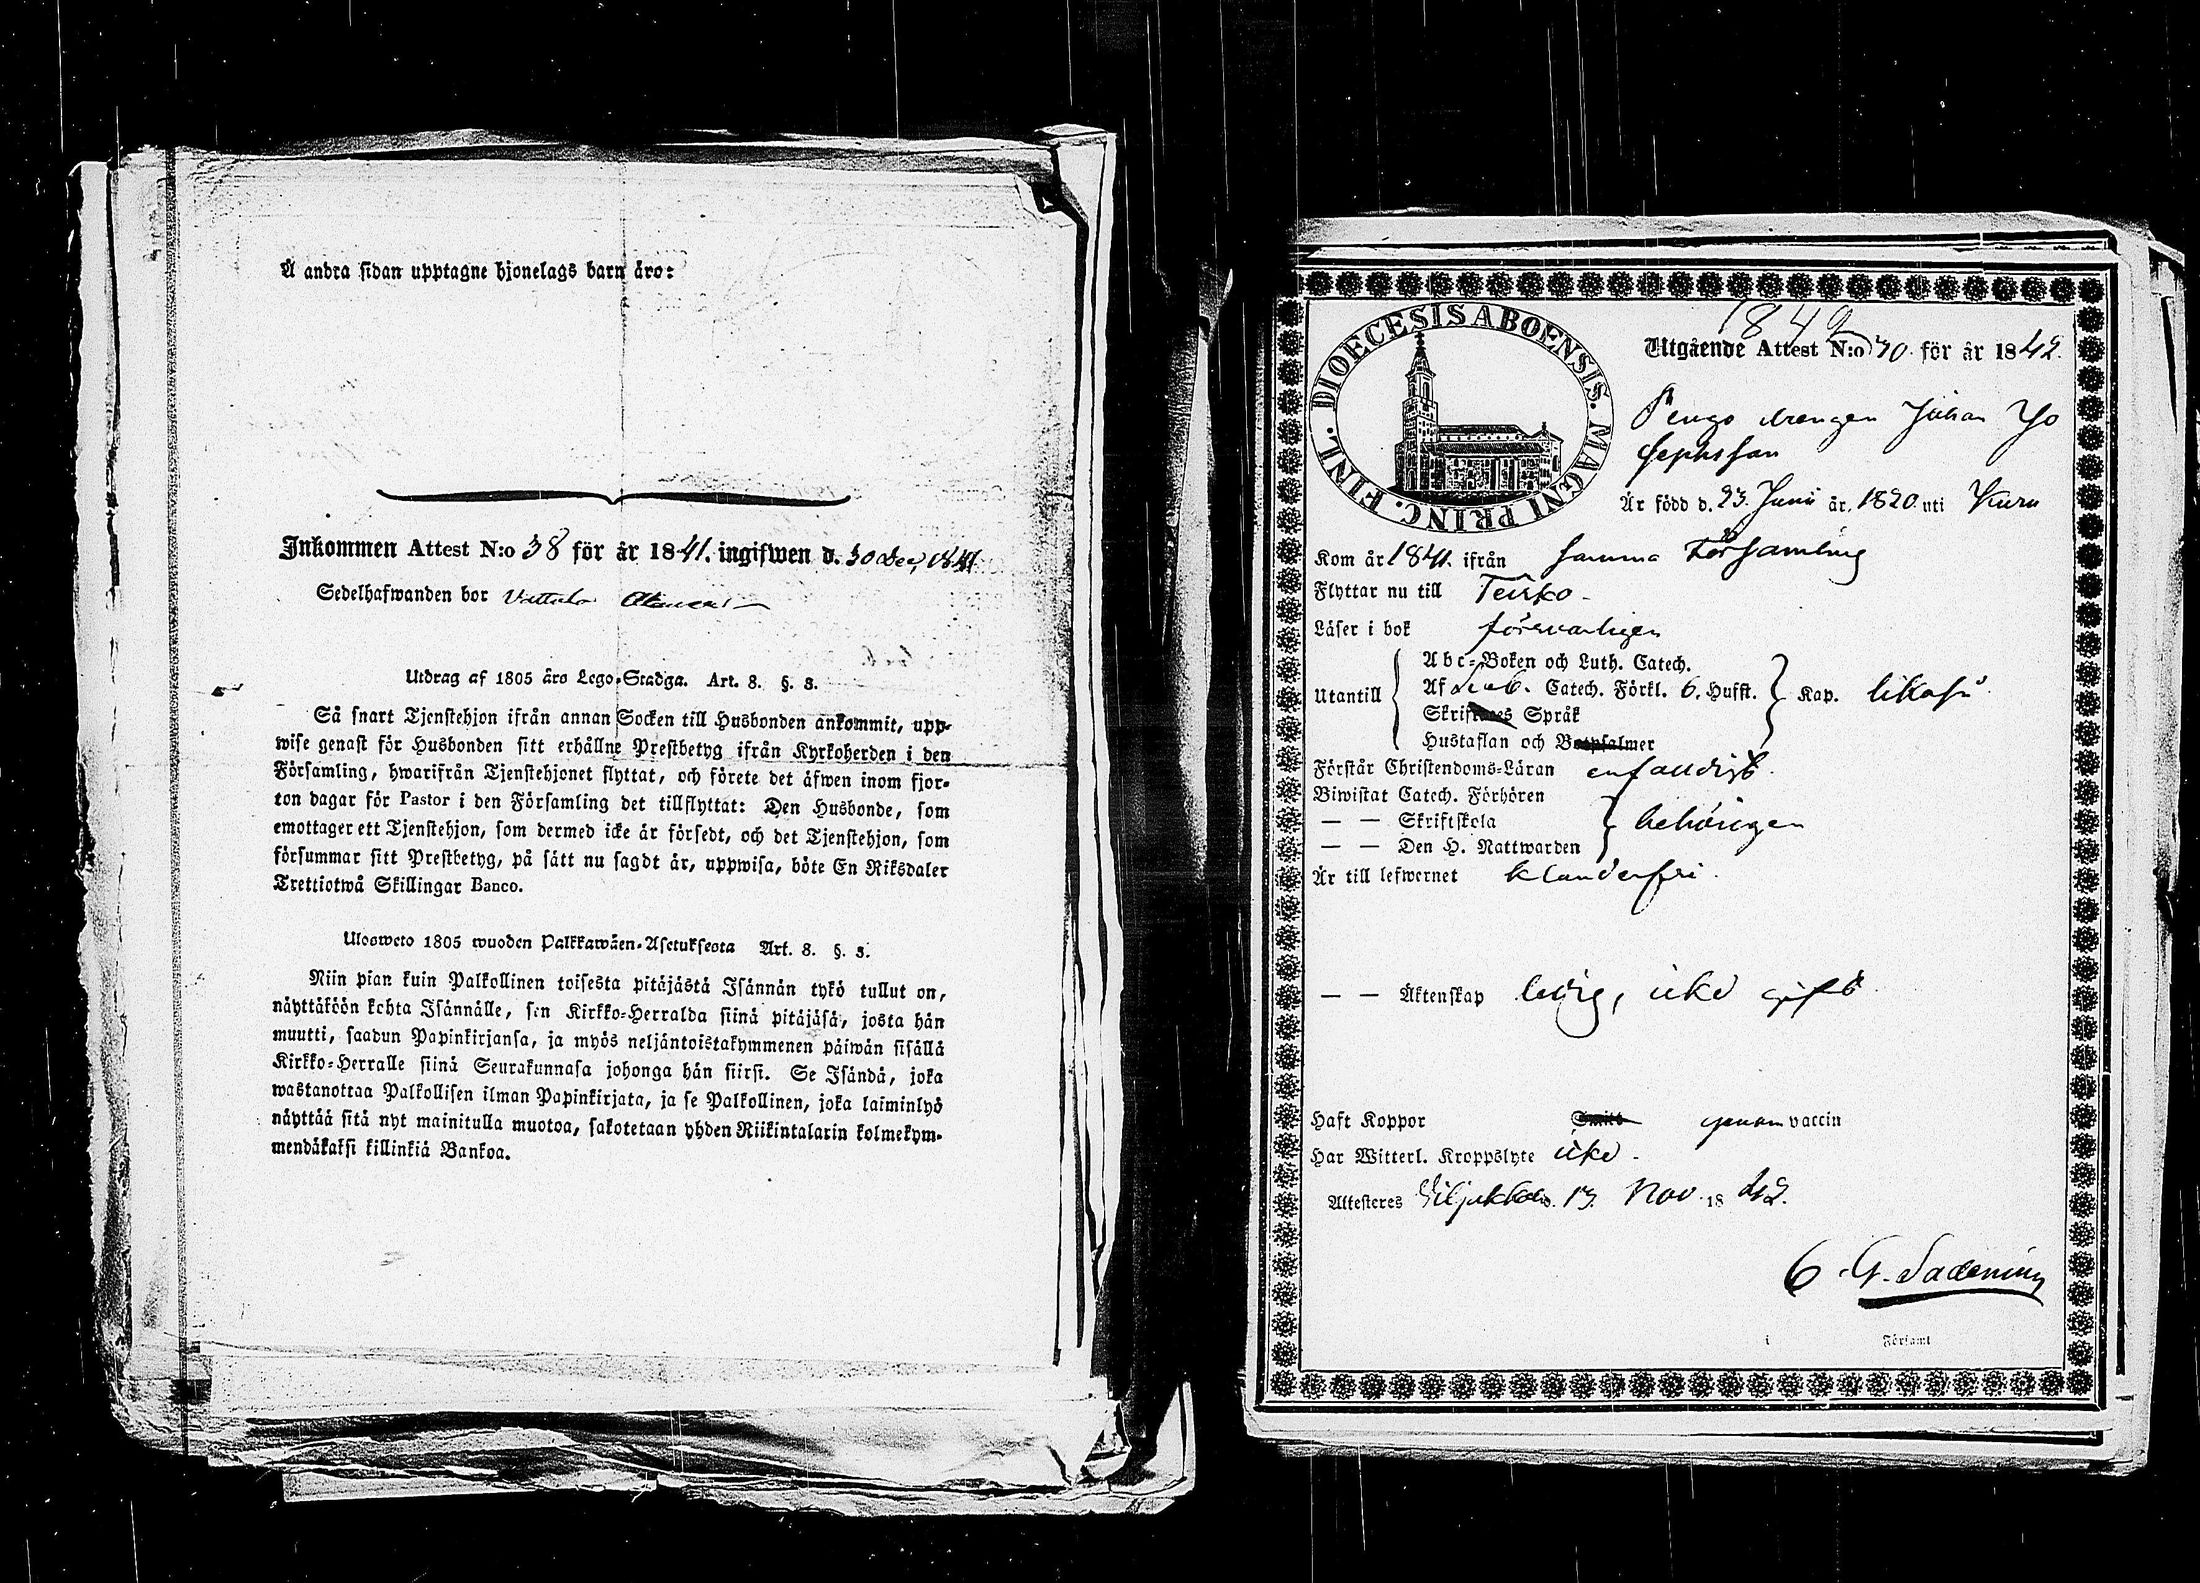 Å andra sidan upptagne hjonelags barn äro:
Inkommen Attest N:o 38 för år 1841. ingifwen d. 30 Dec, 1841
Sedelhafwanden bor
Utdrag af 1805 års Lego-Stadga. Art. 8. §. 3.
Så snart Tjenstehjon ifrån annan Socken till Husbonden ankommit, upp-
wise genast för Husbonden sitt erhållne Prestbetyg ifrån Kyrkoherden i den
Församling, hwarifrån Tjenstehjonet flyttat, och förete det äfwen inom fjor-
ton dagar för Pastor i den Församling det tillflyttat: Den Husbonde, som
emottager ett Tjenstehjon, som dermed icke är försedt, och det Tjenstehjon, som
försummar sitt Prestbetyg, på sätt nu sagdt är, uppwisa, böte En Riksdaler
Trettiotwå Skillingar Banco.
Ulosweto 1805 wuoden Palkkawäen-Asetuksesta Art. 8. §. 3.
Niin pian kuin Palkollinen toisesta pitäjästä Isännän tykö tullut on,
näyttäköön kohta Isännälle, sen Kirkko-Herralda siinä pitäjäsä, josta hän
muutti, saadun Papinkirjansa, ja myös neljäntoistakymmenen päiwän sisällä
Kirkko-Herralle siinä Seurakunnasa johonga hän siirsi. Se Isändä, joka
wastanottaa Palkollisen ilman Papinkirjata, ja se Palkollinen, joka laiminlyö
näyttää sitä nyt mainitulla muotoa, sakotetaan yhden Riikintalarin kolmekym-
mendäkaksi killinkiä Bankoa.
DIOECESIS ABOENSIS. MAGNI PRINC. FINL.
1842
Utgående Attest N:o 70 för år 1842.
drengen Johan Jo
sephsson
Är född d. 23. Junii år. 1820 uti Kuru
Kom år 1841. ifrån samma Församling
Flyttar nu till Teisko
Läser i bok försvarligen
Abc-Boken och Luth. Catech.
Utantill Af Catech. Förkl. 6. Hufst. Kap. likaså
Skriftenes Språk
Hustaflan och Botpsalmer
Förstår Christendoms-Läran enfaldigt.
Biwistat Catech. Förhören
— — Skriftskola behörigen
— — Den H. Nattwarden
Är till lefwernet klanderfri.
— — Äktenskap ledig, icke gift
Haft Koppor genom vaccin
Har Witterl. Kroppslyte icke.
Attesteres 13. Nov. 1842.
C. G.
i Församl